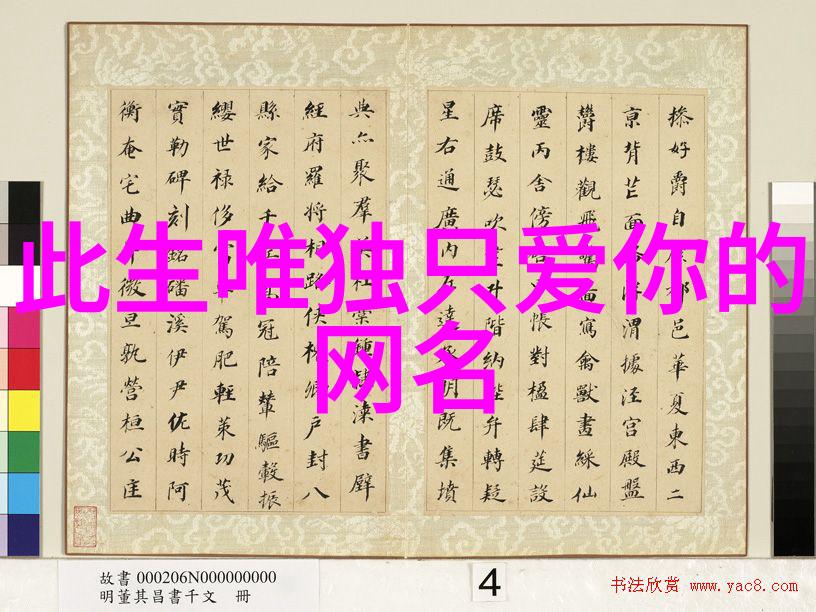 此生唯独只爱你的
网名
操好爵自縻都邑華夏東西二
京背芒面洛浮渭據涇宮殿盤
鬱樓觀飛驚圖寫禽獸畫綵仙
靈丙舍傍啟甲帳對楹肆莚設
席鼓瑟吹笙升階納陛弁轉疑
星右通廣內左達承明既集墳
典亦聚羣英杜稾鍾隸漆書壁
經府羅將相路俠槐卿戶封八
縣家給千兵高冠陪輦驅轂振
纓世祿侈富車駕肥輕策功茂
實勒碑刻銘磻溪伊尹佐時阿
衡奄宅曲阜微旦孰營桓公匡
故書 000206N000000000
明董其昌書千文 冊
4
书法欣赏 www.yac8.com